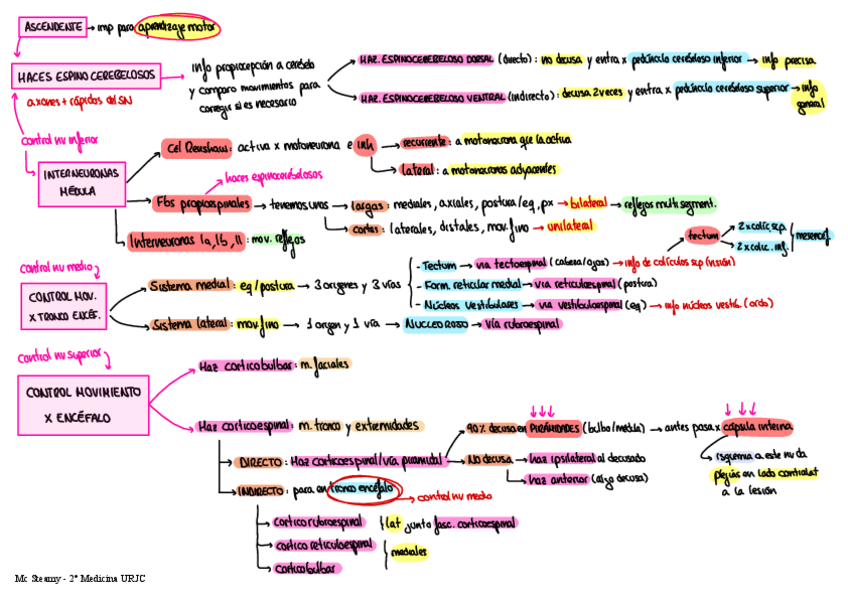 ASCENDENTE → imp para aprendizaje motor
HACES ESPINOCEREBELOSOS
axones + rápidos del SN
info propiocepción a cerebelo
y comparo movimientos para
corregir si es necesario
HAZ. ESPINOCEREBELOSO DORSAL (directo): no decusa y entra x pedúnculo cerebeloso inferior → info precisa
HAZ. ESPINOCEREBELOSO VENTRAL (indirecto): decusa 2 veces y entra x pedúnculo cerebeloso superior → info
general
control nv inferior
INTERNEURONAS
MÉDULA
Cel Renshaw: activa x motoneurona e inh
recurriente: a motoneurona que la activa
lateral: a motoneuronas adyacentes
haces espinocerebelosos
Fbs propioespinales → tenemos unas → largas: mediales, axiales, postura/eq, px → bilateral → reflejos multisegment.
cortas: laterales, distales, mov. fino → unilateral
Interneuronas Ia, Ib, II: mov. reflejos
tectum
2x colic. sup.
2x colic. inf.
mesencef.
control nv medio
CONTROL MOV.
X TRONCO ENCÉF.
Sistema medial: eq/postura → 3 orígenes y 3 vías
- Tectum → vía tectoespinal (cabeza/ojos) → info de colículos sup (visión)
- Form. reticular medial → vía reticuloespinal (postura)
- Núcleos vestibulares → vía vestibuloespinal (eq) → info núcleos vestib. (oído)
Sistema lateral: mov. fino → 1 origen y 1 vía → NUCLEO ROJO → vía rubroespinal
control nv superior
CONTROL MOVIMIENTO
X ENCÉFALO
Haz corticobulbar: m. faciales
Haz corticoespinal: m. tronco y extremidades
DIRECTO: Haz corticoespinal/vía piramidal
90% decusa en PIRÁMIDES (bulbo/médula) → antes pasa x cápsula interna
No decusa → haz ipsilateral al decusado
haz anterior (algo decusa)
isquemia a este nv da
plejías en lado contralat
a la lesión
INDIRECTO: para en tronco encéfalo
control nv medio
corticorubroespinal
lat junto fasc. corticoespinal
corticoreticuloespinal
corticobulbar
mediales
Mc Steamy - 2º Medicina URJC